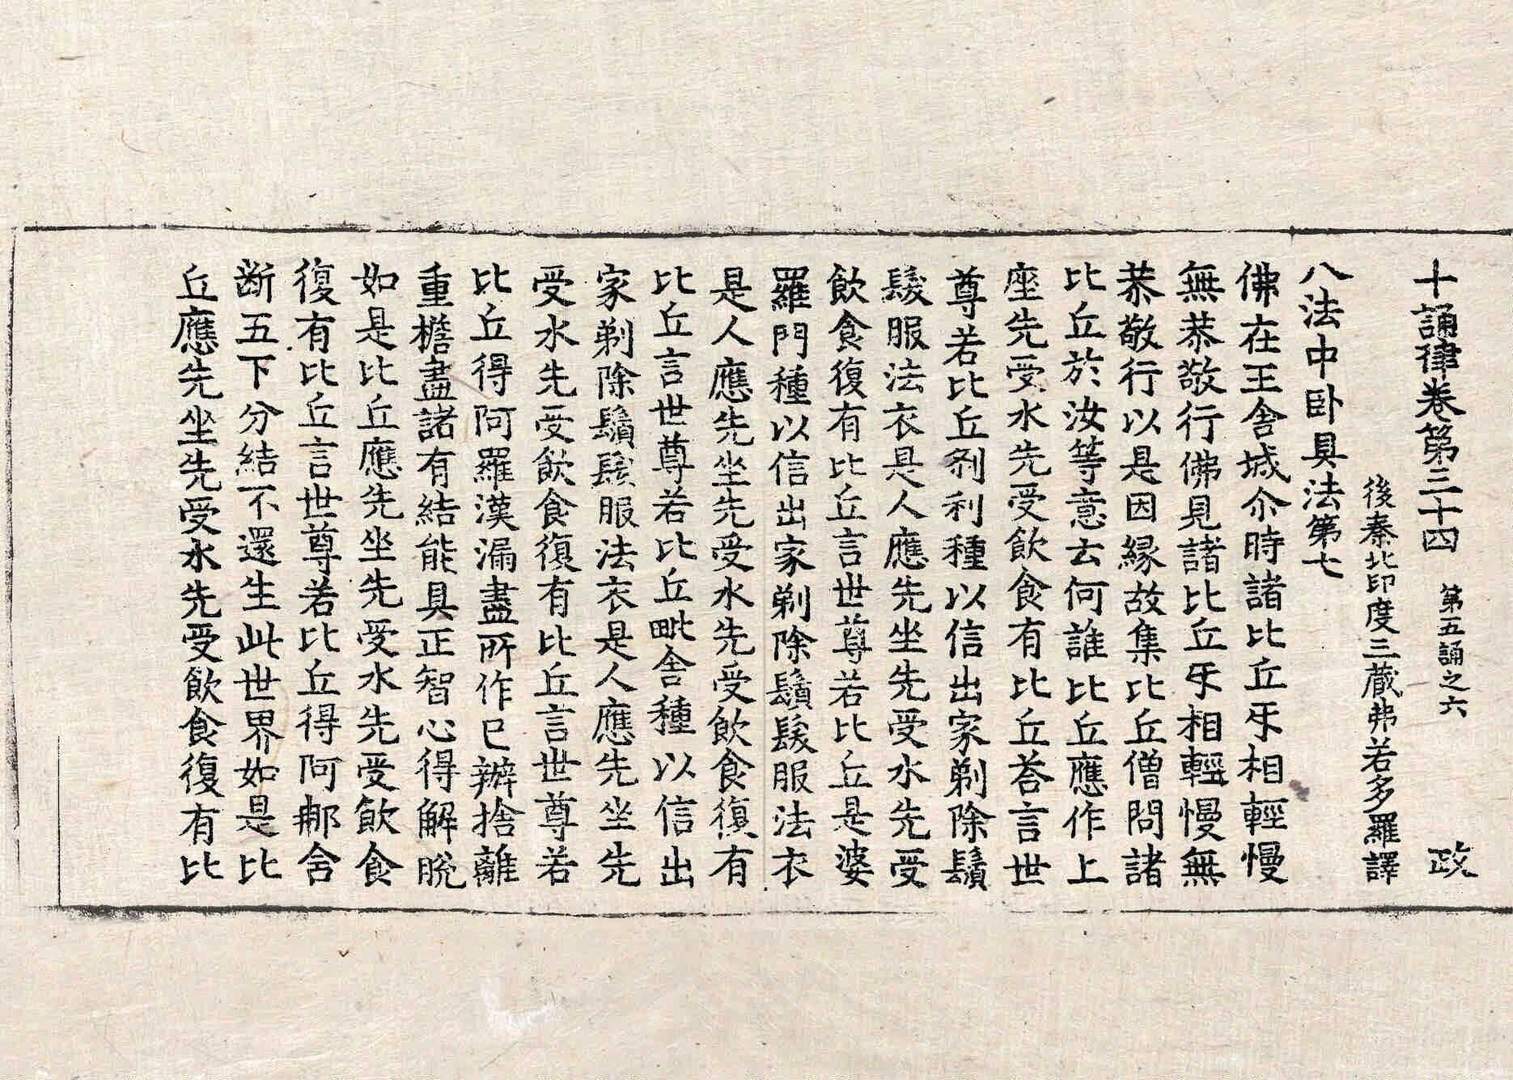 十誦律卷第三十四 第五誦之六 政
後秦北印度三藏弗若多羅譯
八法中卧具法第七
佛在王舍城尒時諸比丘㸦相輕慢
無恭敬行佛見諸比丘㸦相輕慢無
恭敬行以是因緣故集比丘僧問諸
比丘於汝等意云何誰比丘應作上
座先受水先受飲食有比丘荅言世
尊若比丘刹利種以信出家剃除鬚
髮服法衣是人應先坐先受水先受
飲食復有比丘言世尊若比丘是婆
羅門種以信出家剃除鬚髮服法衣
是人應先坐先受水先受飲食復有
比丘言世尊若比丘毗舍種以信出
家剃除鬚髮服法衣是人應先坐先
受水先受飲食復有比丘言世尊若
比丘得阿羅漢漏盡所作已辦捨離
重擔盡諸有結能具正智心得解脫
如是比丘應先坐先受水先受飲食
復有比丘言世尊若比丘得阿那含
断五下分結不還生此世界如是比
丘應先坐先受水先受飲食復有比